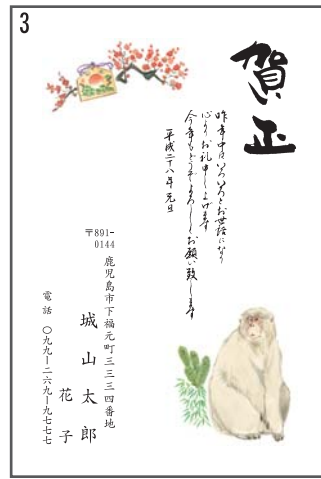 3
賀正
昨年中はいろいろとお世話になり
心よりお礼申し上げます
今年もどうぞよろしくお願い致します
平成二十八年元旦
〒891-
0144
鹿児島市下福元町三三三四番地
城山太郎
花子
電話 〇九九－二六九－九七七七